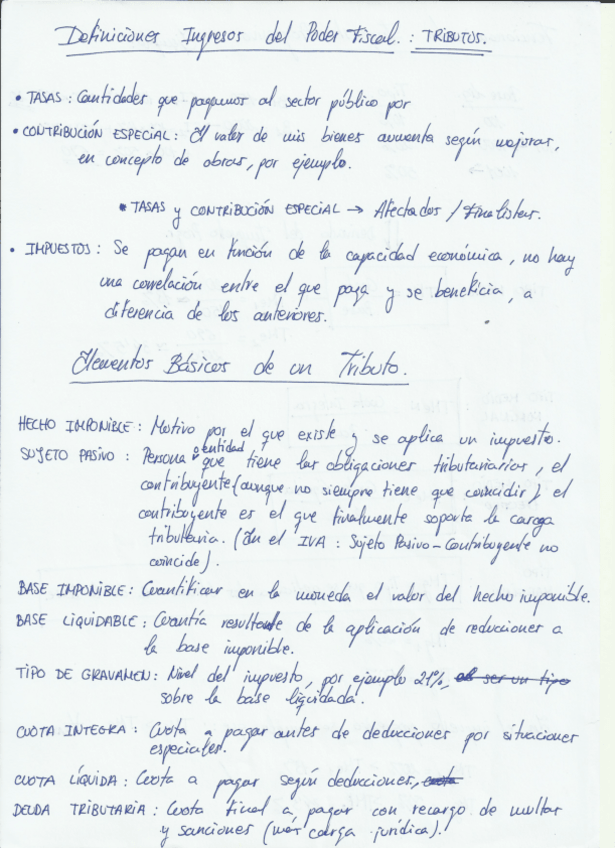 Definiciones Ingresos del Poder Fiscal. : TRIBUTOS.
• TASAS : Cantidades que pagamos al sector público por
• CONTRIBUCIÓN ESPECIAL : El valor de mis bienes aumenta según mejoras,
en concepto de obras, por ejemplo.
• TASAS y CONTRIBUCIÓN ESPECIAL → Afectados / Finalistas.
• IMPUESTOS : Se pagan en función de la capacidad económica, no hay
una correlación entre el que paga y se beneficia, a
diferencia de los anteriores.
Elementos Básicos de un Tributo.
HECHO IMPONIBLE : Motivo por el que existe y se aplica un impuesto.
SUJETO PASIVO : Persona o entidad que tiene las obligaciones tributarias, el
contribuyente (aunque no siempre tiene que coincidir) el
contribuyente es el que finalmente soporta la carga
tributaria. (En el IVA : Sujeto Pasivo - Contribuyente no
coincide).
BASE IMPONIBLE : Cuantificar en la moneda el valor del hecho imponible.
BASE LIQUIDABLE : Cuantía resultante de la aplicación de reducciones a
la base imponible.
TIPO DE GRAVAMEN : Nivel del impuesto, por ejemplo 21%, el ser un tipo
sobre la base liquidada.
CUOTA INTEGRA : Cuota a pagar antes de deducciones por situaciones
especiales.
CUOTA LÍQUIDA : Cuota a pagar según deducciones, cuota
DEUDA TRIBUTARIA : Cuota final a pagar con recargo de multas
y sanciones (más carga jurídica).